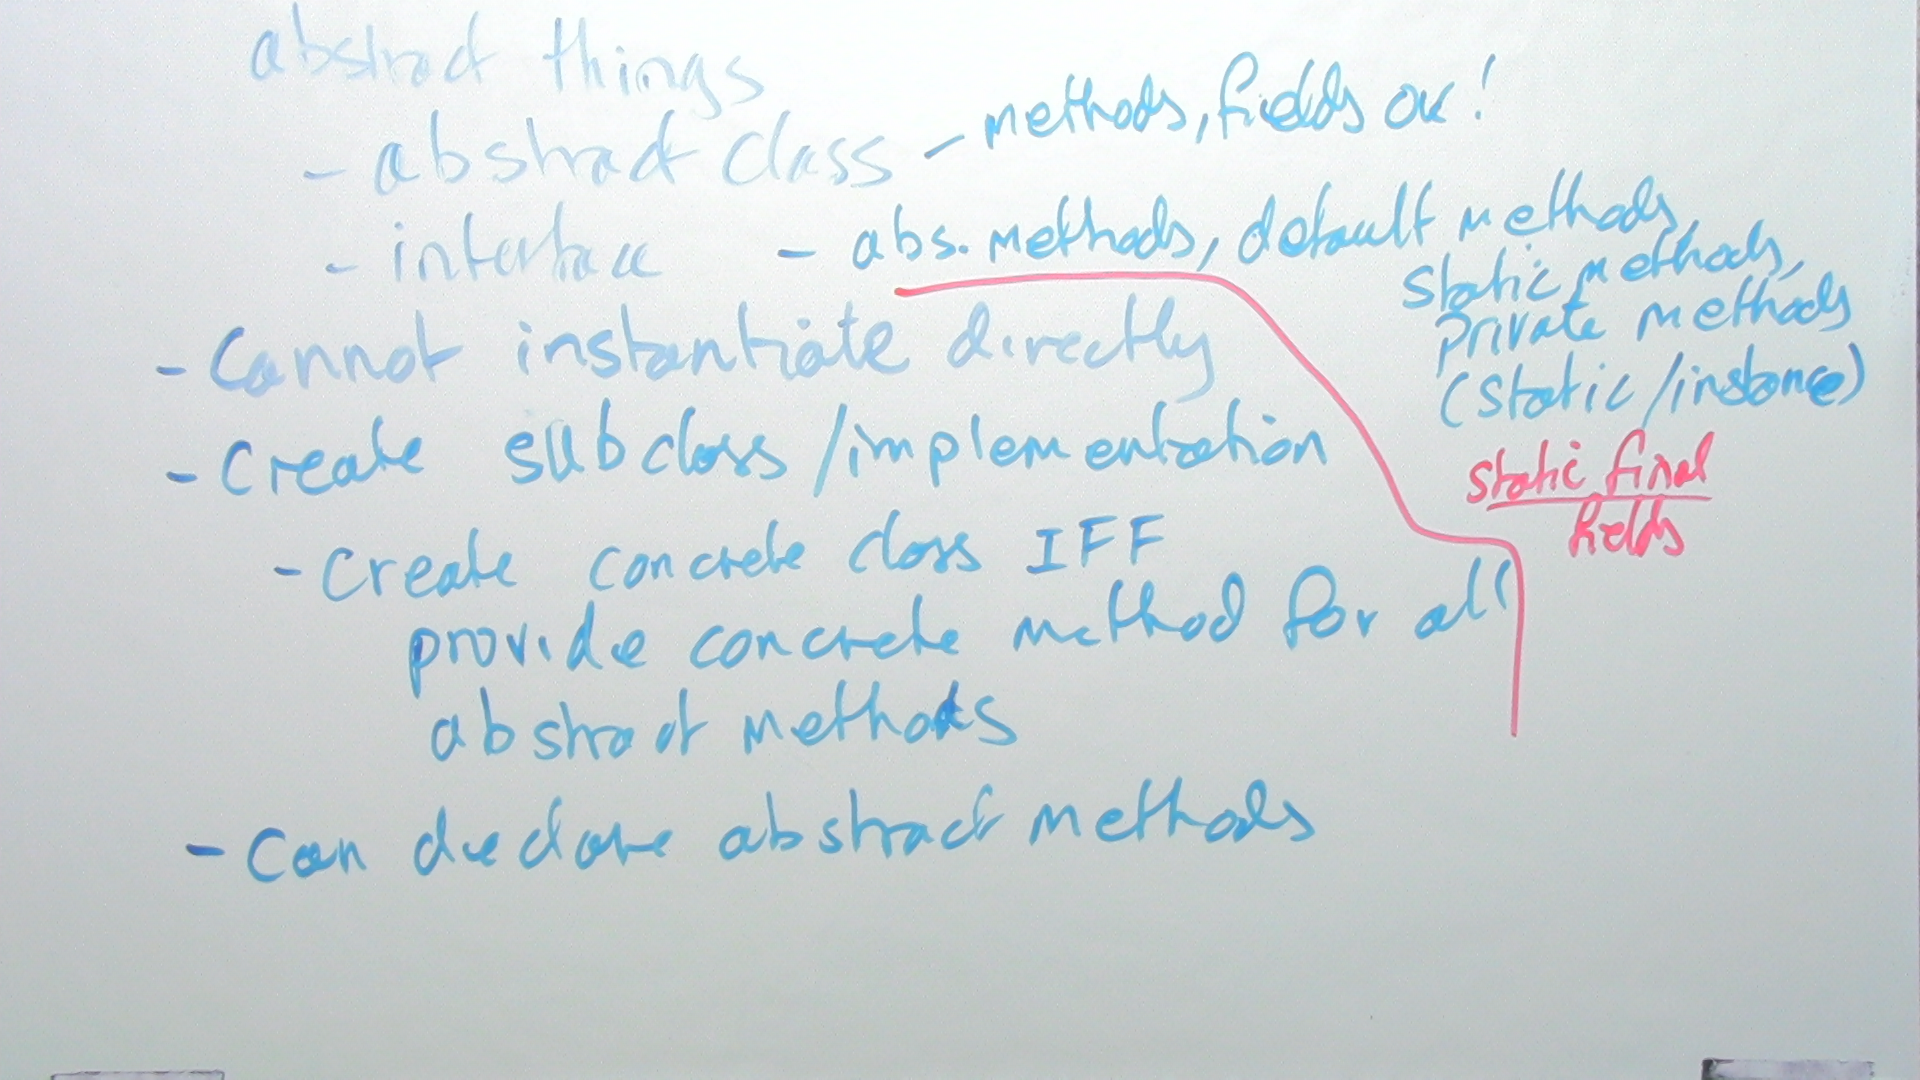 abstract things
- abstract class - methods, fields OK!
- interface - abs. methods, default methods,
static methods,
private methods
(static/instance)
static final
fields
- Cannot instantiate directly
- Create subclass/implementation
- Create concrete class IFF
provide concrete method for all
abstract methods
- Can declare abstract methods